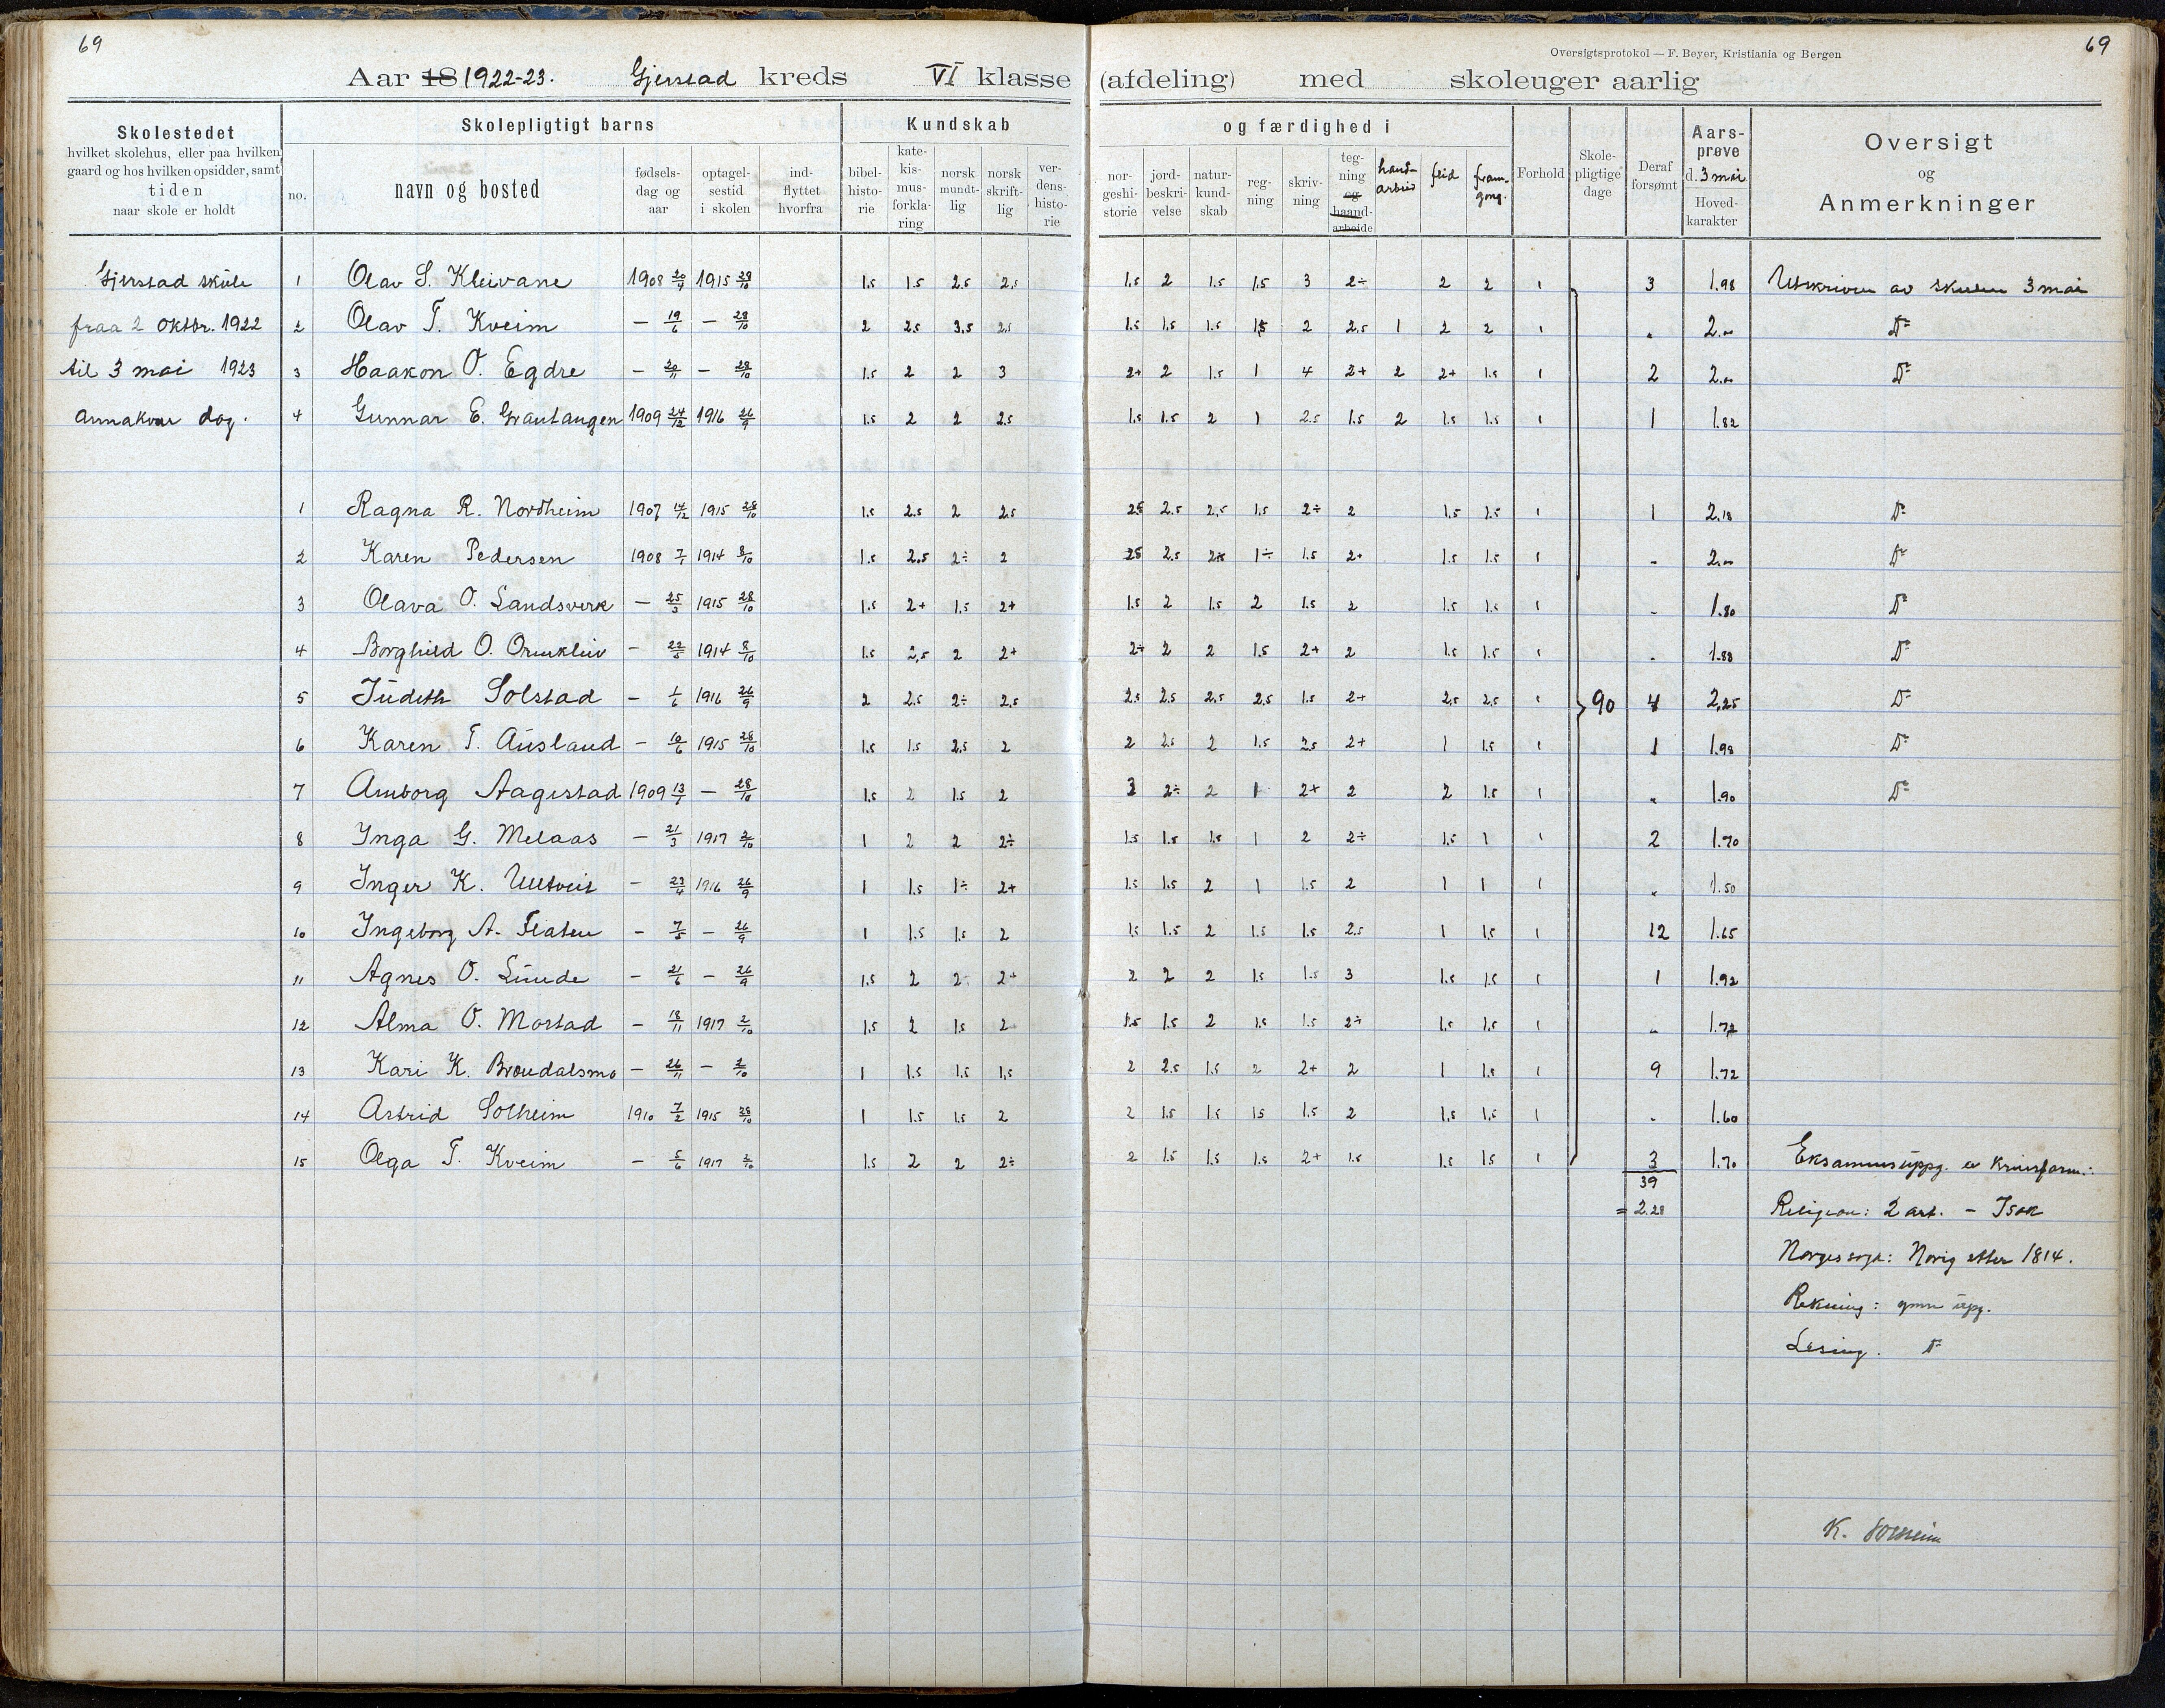 69
69
Oversigtsprotokol — F. Beyer, Kristiania og Bergen
Aar 18 1922-23. Gjerstad kreds VI klasse (afdeling) med skoleuger aarlig
Skolestedet
hvilket skolehus, eller paa hvilken
gaard og hos hvilken opsidder, samt
tiden
naar skole er holdt
Skolepligtigt barns
no.
navn og bosted
fødsels-
dag og
aar
optagel-
sestid
i skolen
ind-
flyttet
hvorfra
Kundskab
bibel-
histo-
rie
kate-
kis-
mus-
forkla-
ring
norsk
mundt-
lig
norsk
skrift-
lig
ver-
dens-
histo-
rie
og færdighed i
nor-
geshi-
storie
jord-
beskri-
velse
natur-
kund-
skab
reg-
ning
skriv-
ning
teg-
ning
og
haand-
arbeide
hand-
arbeid
flid
fram-
gong.
Forhold
Skole-
pligtige
dage
Deraf
forsømt
Aars-
prøve
d. 3 mai
Hoved-
karakter
Oversigt
og
Anmerkninger
Gjerstad skule 1 Olav S. Kleivane 1908 20/9 1915 28/10 1.5 1.5 2.5 2.5 1.5 2 1.5 1.5 3 2÷ 2 2 1 3 1.98 Utskriven av skulen 3 mai
fraa 2 oktbr. 1922 2 Olav T. Kveim — 19/6 — 28/10 2 2.5 3.5 2.5 1.5 1.5 1.5 1.5 2 2.5 1 2 2 1 " 2.00 D°
til 3 mai 1923 3 Haakon O. Egdre — 20/11 — 28/10 1.5 2 2 3 2+ 2 1.5 1 4 2+ 2 2+ 1.5 1 2 2.00 D°
annakvar dag. 4 Gunnar E. Grautangen 1909 24/12 1916 26/9 1.5 2 2 2.5 1.5 1.5 2 1 2.5 1.5 2 1.5 1.5 1 1 1.82
1 Ragna R. Nordheim 1907 14/12 1915 28/10 1.5 2.5 2 2.5 2.5 2.5 2.5 1.5 2÷ 2 1.5 1.5 1 1 2.18 D°
2 Karen Pedersen 1908 7/1 1914 8/10 1.5 2.5 2÷ 2 2.5 2.5 1÷ 1.5 2+ 1.5 1.5 1 " 2.00 D°
3 Olava O. Landsverk — 25/3 1915 28/10 1.5 2+ 1.5 2+ 1.5 2 1.5 2 1.5 2 1.5 1.5 1 " 1.80 D°
4 Borghild O. Ormkleiv — 22/5 1914 8/10 1.5 2.5 2 2+ 2÷ 2 2 1.5 2+ 2 1.5 1.5 1 " 1.88 D°
5 Judith Solstad — 1/6 1916 26/9 2 2.5 2÷ 2.5 2.5 2.5 2.5 2.5 1.5 2+ 2.5 2.5 1 90 4 2.25 D°
6 Karen T. Ausland — 10/6 1915 28/10 1.5 1.5 2.5 2 2 2.5 2 1.5 2.5 2+ 1 1.5 1 1 1.98 D°
7 Amborg Aagestad 1909 13/1 — 28/10 1.5 2 1.5 2 3 2÷ 2 1 2+ 2 2 1.5 1 " 1.90 D°
8 Inga G. Melaas — 21/3 1917 2/10 1 2 2 2÷ 1.5 1.5 1.5 1 2 2÷ 1.5 1 1 2 1.70
9 Inger K. Ulltveit — 23/4 1916 26/9 1 1.5 1÷ 2+ 1.5 1.5 2 1 1.5 2 1 1 1 " 1.50
10 Ingeborg A. Flaten — 7/5 — 26/9 1 1.5 1.5 2 1.5 1.5 2 1.5 1.5 2.5 1 1.5 1 12 1.65
11 Agnes O. Lunde — 21/6 — 26/9 1.5 2 2 2+ 2 2 2 1.5 1.5 3 1.5 1.5 1 1 1.92
12 Alma O. Mostad — 18/11 1917 2/10 1.5 2 1.5 2 1.5 1.5 2 1.5 1.5 2÷ 1.5 1.5 1 " 1.72
13 Kari K. Brøudalsmo — 26/11 — 2/10 1 1.5 1.5 1.5 2 2.5 1.5 2 2+ 2 1 1.5 1 9 1.72
14 Astrid Solheim 1910 7/2 1915 28/10 1 1.5 1.5 2 2 1.5 1.5 1.5 1.5 2 1.5 1.5 1 " 1.60
15 Olga T. Kveim — 5/6 1917 2/10 1.5 2 2 2÷ 2 1.5 1.5 1.5 2+ 1.5 1.5 1.5 1 3 1.70 Eksamensuppg.
39
= 2.28 Religion: 2 art. — Isak
Norgessoga: Norig etter 1814.
Rekning: uppg.
Lesing. D°
K. Solheim